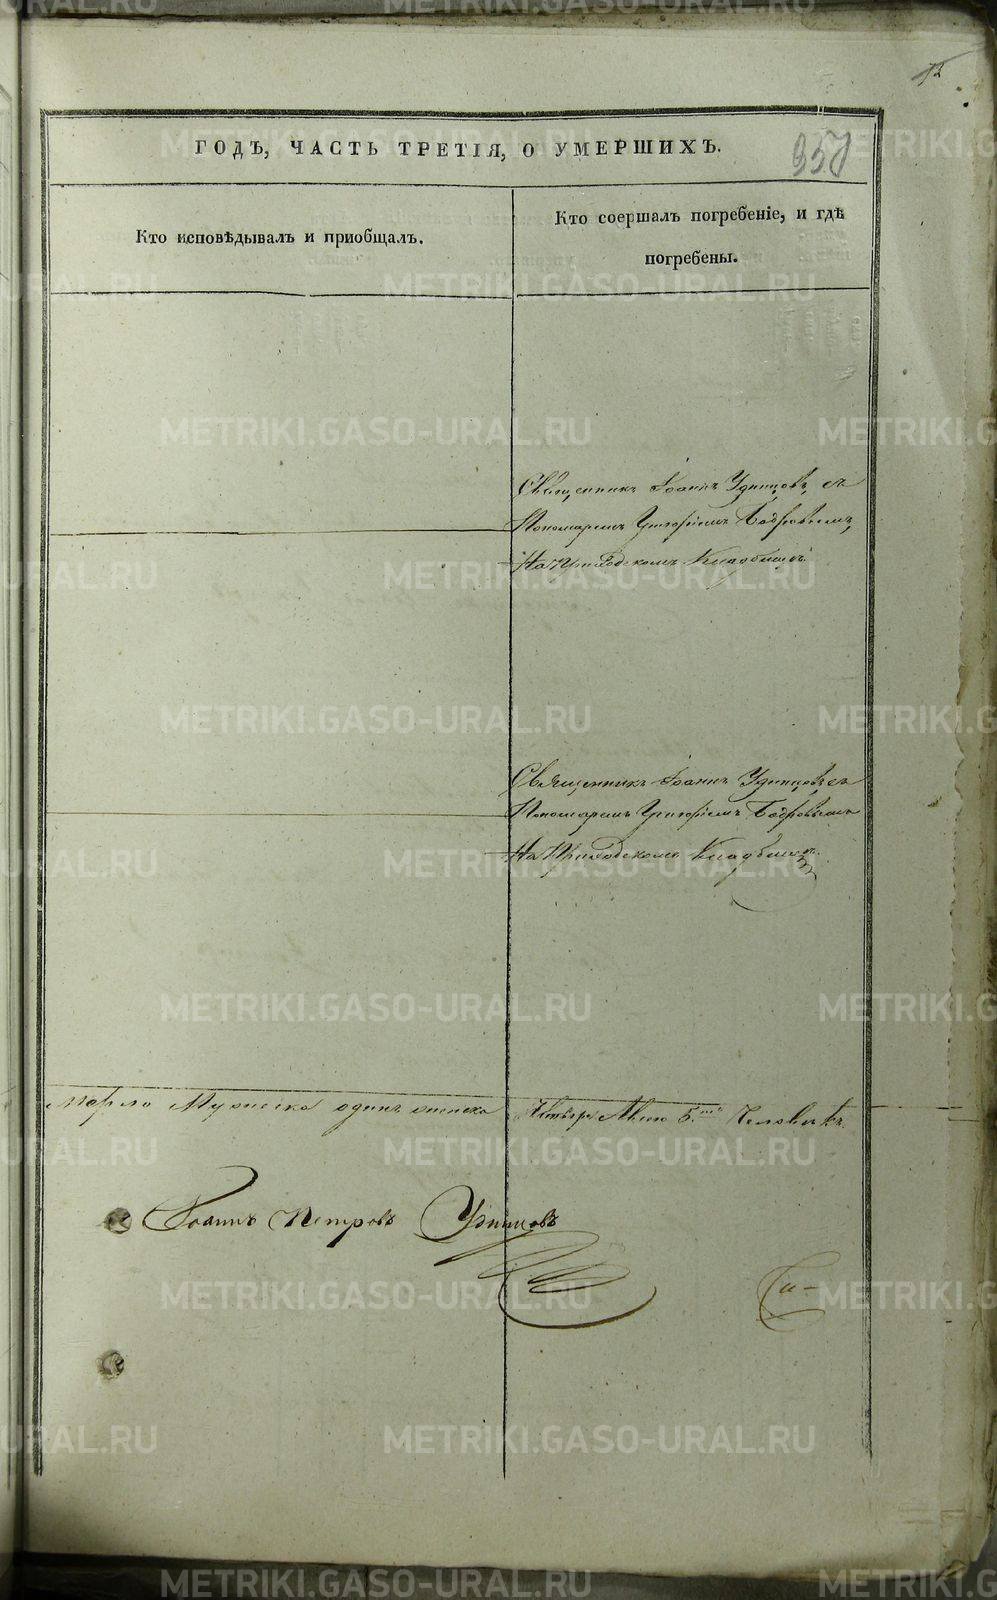 72
ГОДЪ, ЧАСТЬ ТРЕТІЯ, О УМЕРШИХЪ.
957
Кто исповѣдывалъ и приобщалъ.
Кто соершалъ погребеніе, и гдѣ
погребены.
Священникъ Іоаннъ Удинцовъ, съ
Пономаремъ Григоріемъ Бобровымъ,
На Приходскомъ Кладбищѣ.
Священникъ Іоаннъ Удинцовъ съ
Пономаремъ Григоріемъ Бобровымъ
На Приходскомъ Кладбищѣ.
мерло Мужеска одинъ женска
Четверо Всего 5.ть Человѣкъ.
Іоаннъ Петровъ Удинцовъ
METRIKI.GASO-URAL.RU